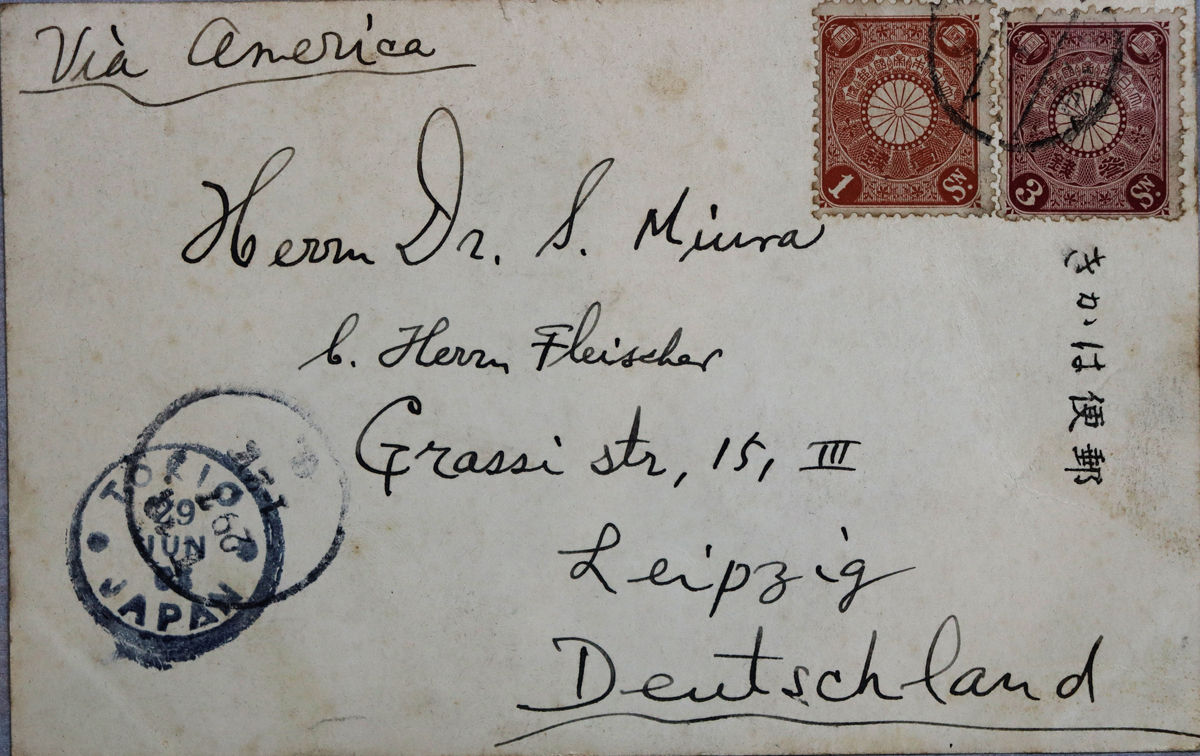 Via America
1 Sɴ.
3 Sɴ.
Herrn Dr. S. Miura
b. Herrn Fleischer
Grassi str, 15, III
Leipzig
Deutschland
郵便はかき
TOKIO
29
JUN
JAPAN